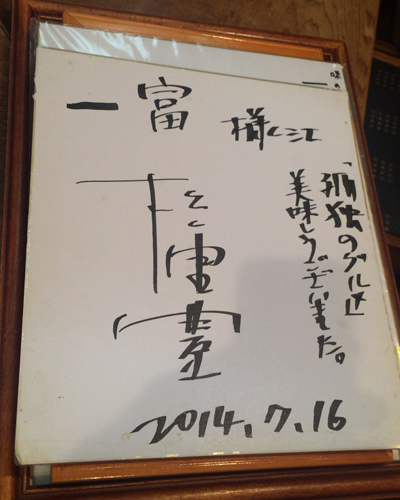 一富 様江
「孤独のグルメ」
美味しうございました。
松重豊
2014.7.16